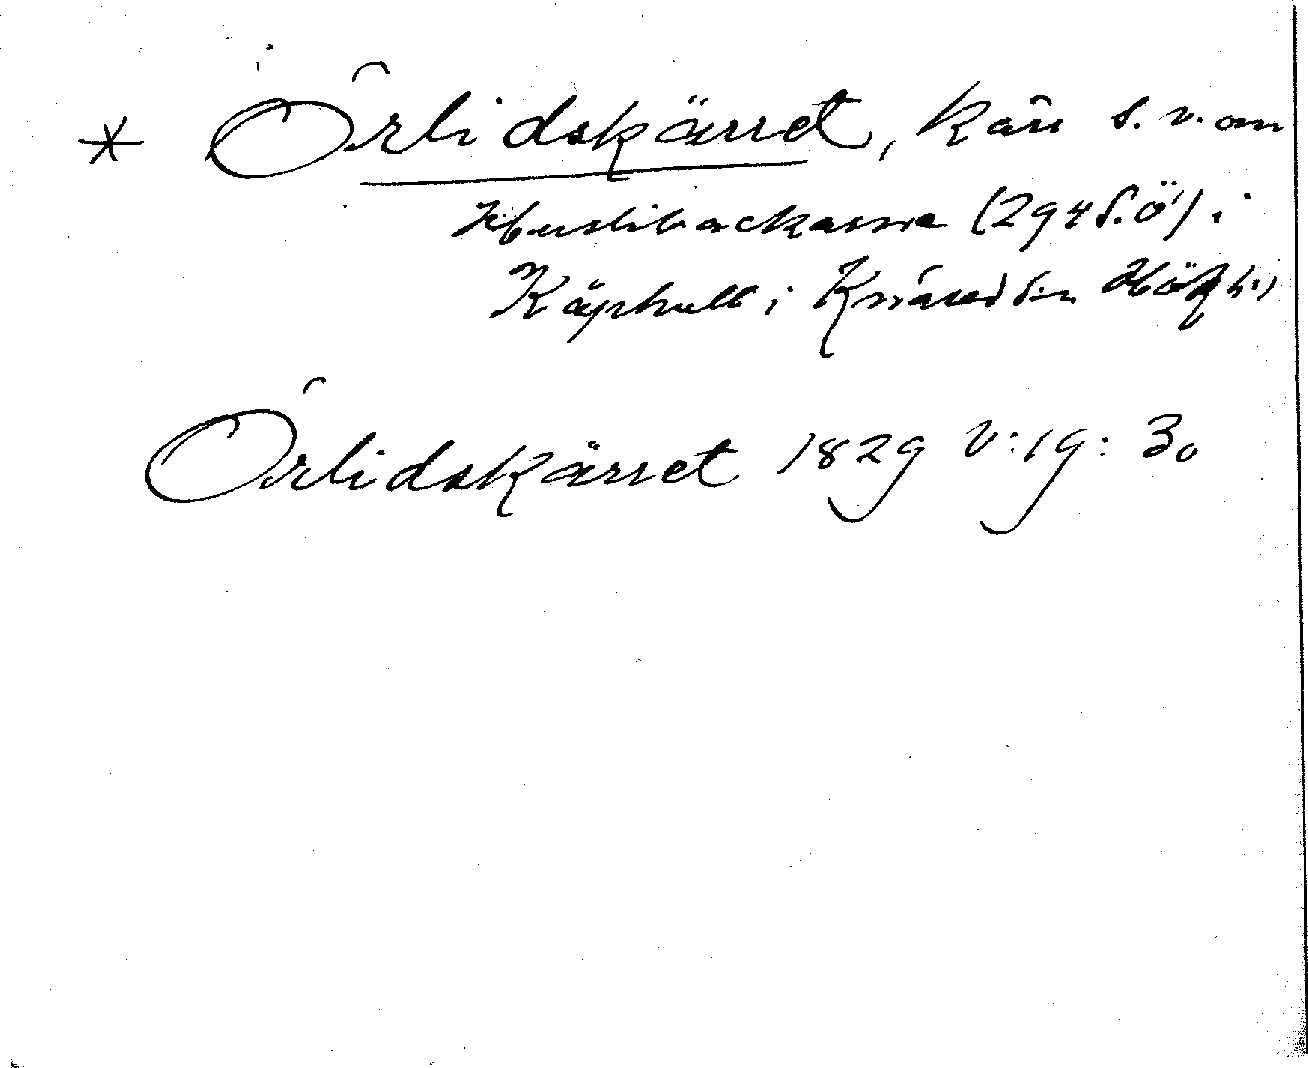 * Örlidskärret, kärr s. v. om
Huslibackarna (294 S.Ö) i
Käphult i Knäred sn Hök hd
Örlidskärret 1829 V:19:30